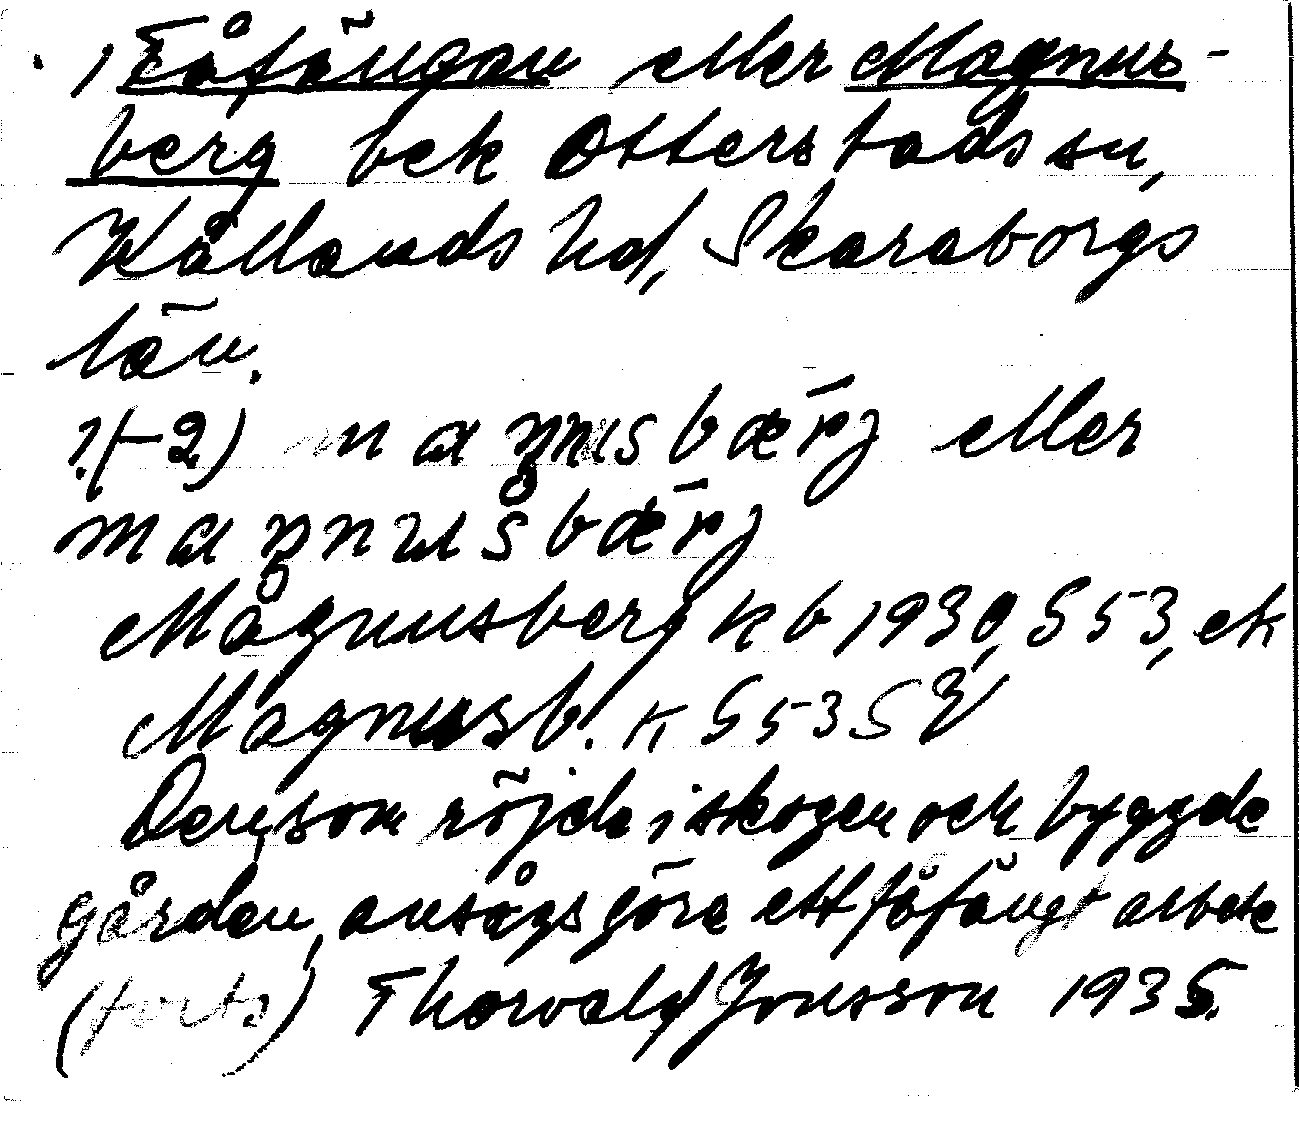 1 Fåfängan eller Magnus-
berg bek Otterstads sn,
Kållands hd, Skaraborgs
län.
1.(-2) maŋnisbærj eller
maŋnusbærj
Magnusberg kb 1930, S 53, ek
Magnusb. k S 53 SV
Den, som röjde i skogen och byggde
gården, ansågs göra ett fåfängt arbete
(forts) Thorvald Jonsson 1935.